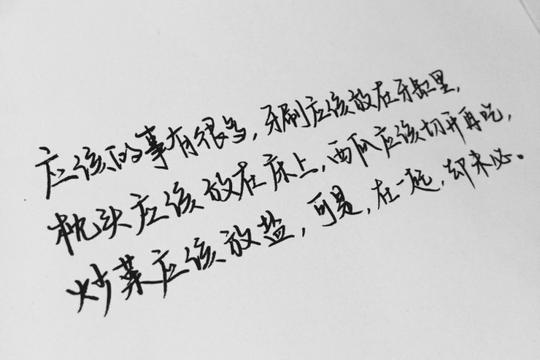 应该的事有很多，牙刷应该放在牙缸里，
枕头应该放在床上，西瓜应该切开再吃，
炒菜应该放盐，可是，在一起，却未必。